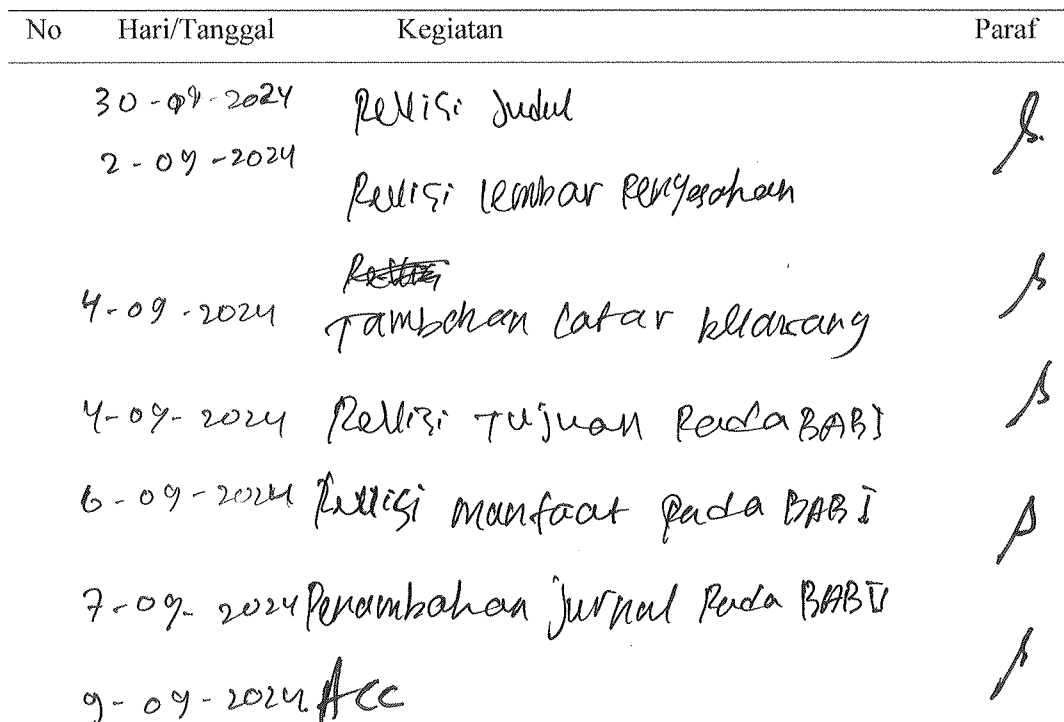 No Hari/Tanggal Kegiatan Paraf
30-08-2024 Revisi Judul
2-09-2024
Revisi lembar Pengesahan
4-09-2024 Tambahan Latar belakang
4-09-2024 Revisi Tujuan Pada BAB I
6-09-2024 Revisi manfaat pada BAB I
7-09-2024 Penambahan jurnal Pada BAB V
9-09-2024. Acc